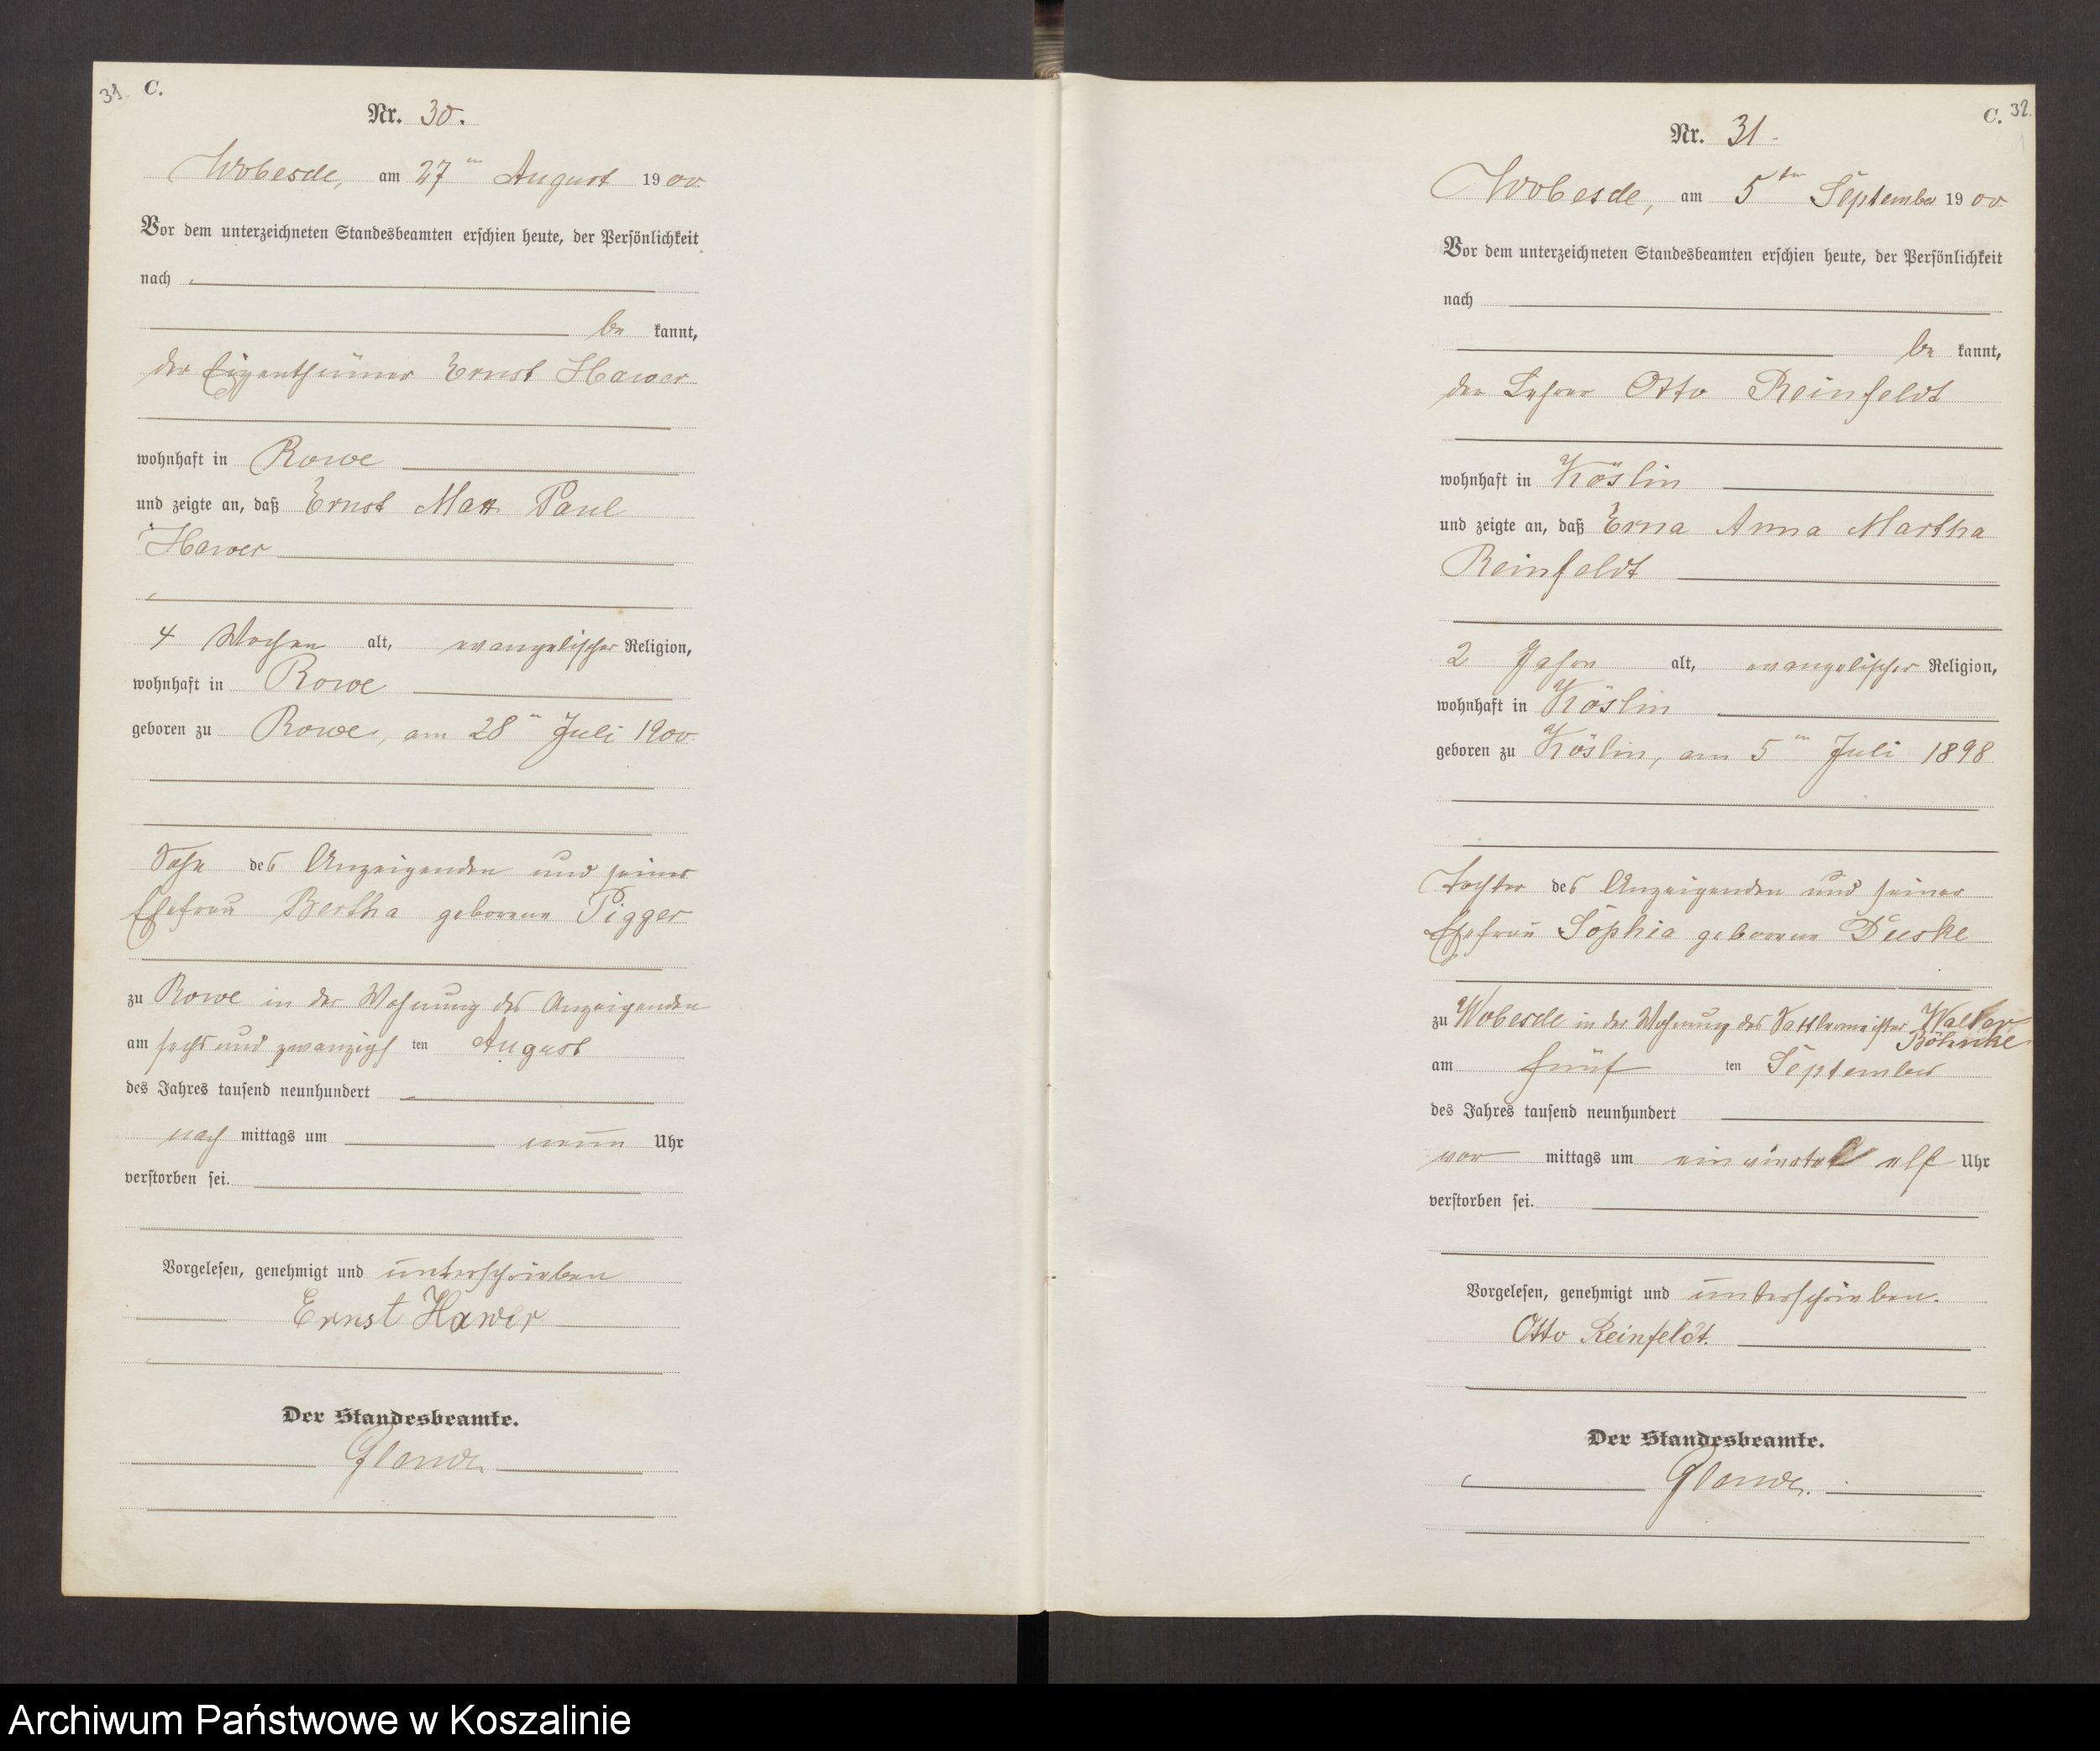 31. C.
Nr. 30.
Wobesde, am 27ten August 1900.
Vor dem unterzeichneten Standesbeamten erschien heute, der Persönlichkeit
nach
be kannt,
der Eigenthümer Ernst Hawer
wohnhaft in Rowe
und zeigte an, daß Ernst Max Paul
Hawer
4 Wochen alt, evangelischer Religion,
wohnhaft in Rowe
geboren zu Rowe, am 28ten Juli 1900.
Sohn des Anzeigenden und seiner
Ehefrau Bertha geborene Pigger
zu Rowe in der Wohnung des Anzeigenden
am sechs und zwanzigs ten August
des Jahres tausend neunhundert
nach mittags um neun Uhr
verstorben sei.
Vorgelesen, genehmigt und unterschrieben
Ernst Hawer
Der Standesbeamte.
C. 32.
Nr. 31.
Wobesde, am 5ten September 1900.
Vor dem unterzeichneten Standesbeamten erschien heute, der Persönlichkeit
nach
be kannt,
der Lehrer Otto Reinfeldt
wohnhaft in Köslin
und zeigte an, daß Erna Anna Martha
Reinfeldt
2 Jahre alt, evangelischer Religion,
wohnhaft in Köslin
geboren zu Köslin, am 5ten Juli 1898
Tochter des Anzeigenden und seiner
Ehefrau Sophia geborene Duske
zu Wobesde in der Wohnung des Sattlermeister Walter
Böhnke
am fünf ten September
des Jahres tausend neunhundert
vor mittags um ein viertel elf Uhr
verstorben sei.
Vorgelesen, genehmigt und unterschrieben.
Otto Reinfeldt.
Der Standesbeamte.
Archiwum Państwowe w Koszalinie